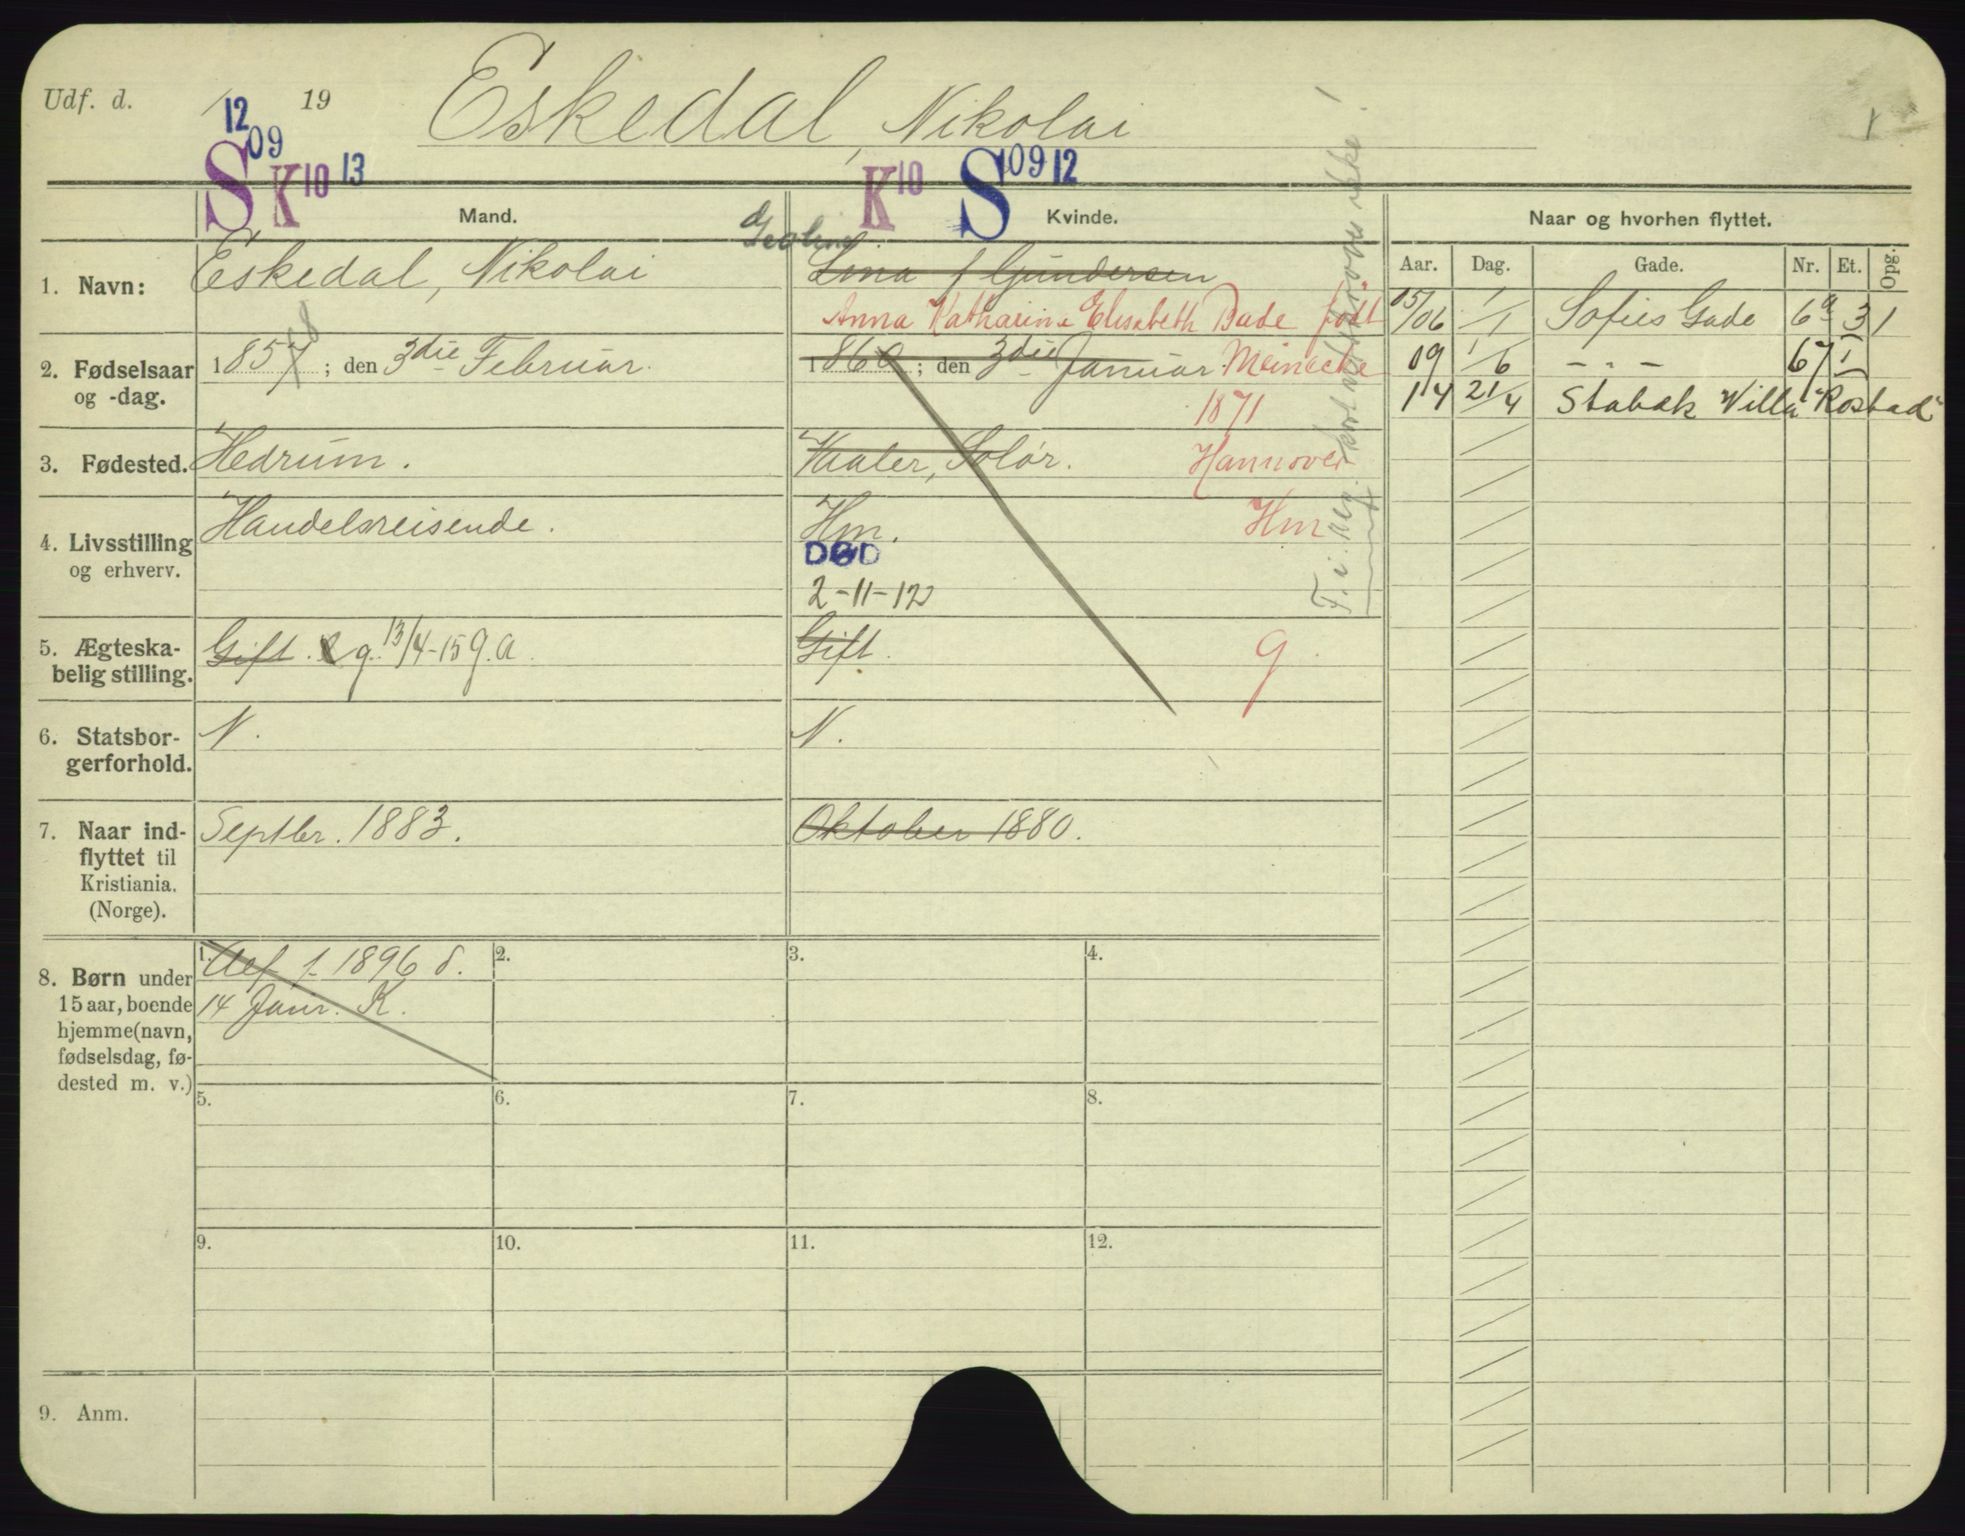 Udf. d. 19
Eskedal, Nikolai
12
09
S K10 13
K10 S09 12
Mand.
Kvinde.
Naar og hvorhen flyttet.
Aar. Dag. Gade. Nr. Et. Opg.
1. Navn:
Eskedal, Nikolai
Lena f Gundersen
Anna Katharine Elisabeth Bade født
Meinecke
2. Fødselsaar
og -dag.
1857 8; den 3die Februar.
1860; den 3die Januar.
1871
3. Fødested.
Hedrum.
Vaaler, Solør.
Hannover
4. Livsstilling
og erhverv.
Handelsreisende.
Hm.
DØD
2-11-12
Hm
5. Ægteska-
belig stilling.
Gift. g. 13/4-15 g.a.
Gift.
g.
6. Statsbor-
gerforhold.
N.
N.
7. Naar ind-
flyttet til
Kristiania.
(Norge).
Septbr. 1883.
Oktober 1880.
8. Børn under
15 aar, boende
hjemme (navn,
fødselsdag, fø-
dested m. v.)
1. Alf f. 1896 d.
14 Janr. K.
2.
3.
4.
5.
6.
7.
8.
9.
10.
11.
12.
9. Anm.
05/06 1/1 Sofies Gade 6a 3 1
09 1/6 - " - 67 1
14 21/4 Stabak Villa "Rostad"